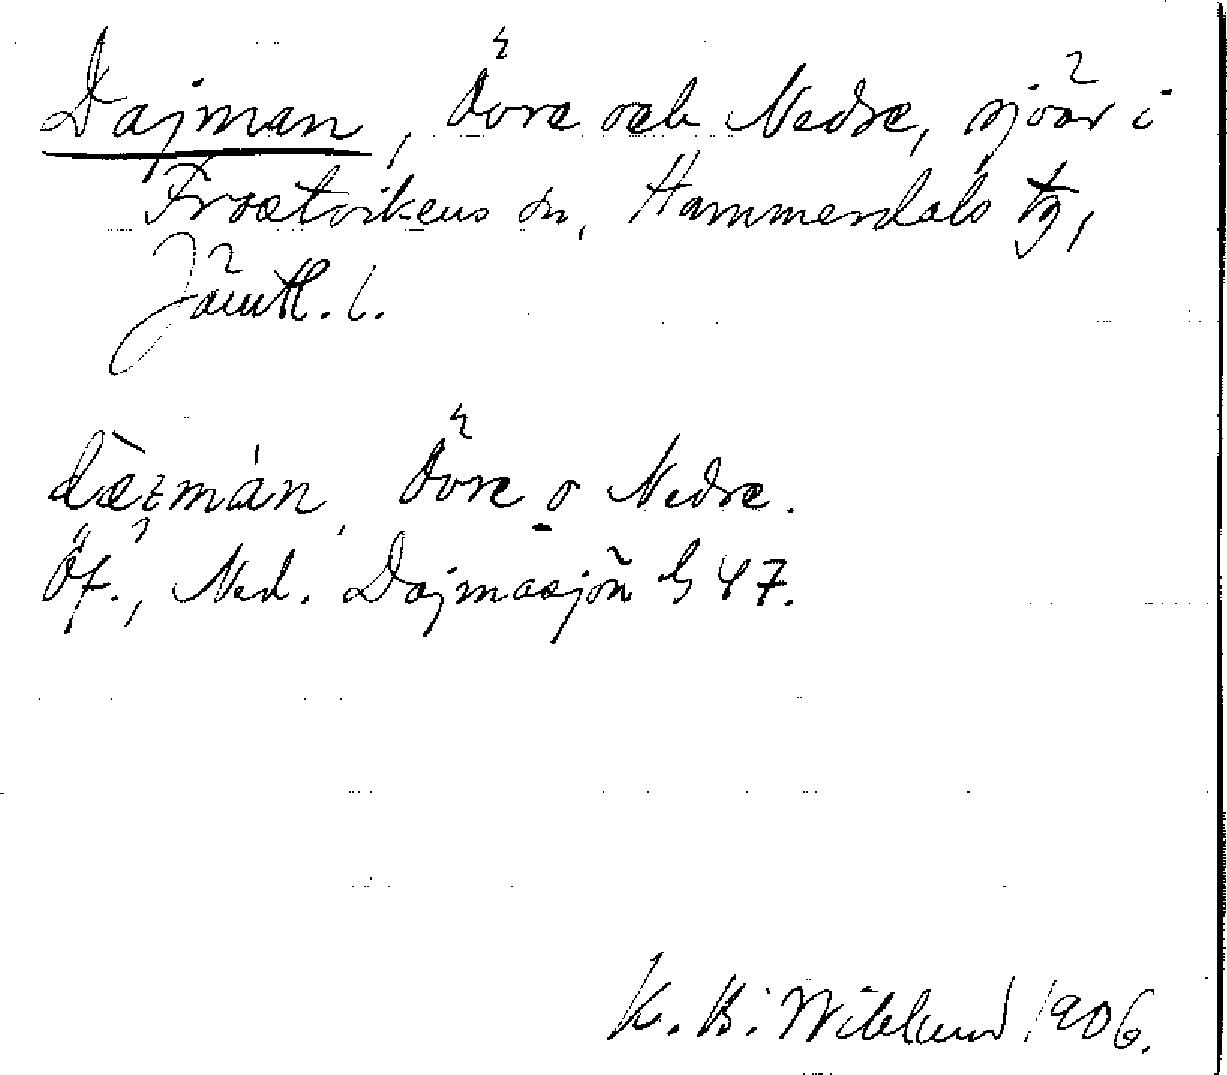 Dajman, Övre och Nedre, sjöar i
Frostvikens sn, Hammerdals tg,
Jämtl. l.
Övre o Nedre.
Öf., Ned. Dajmasjön G 47.
K. B. Wiklund 1906.